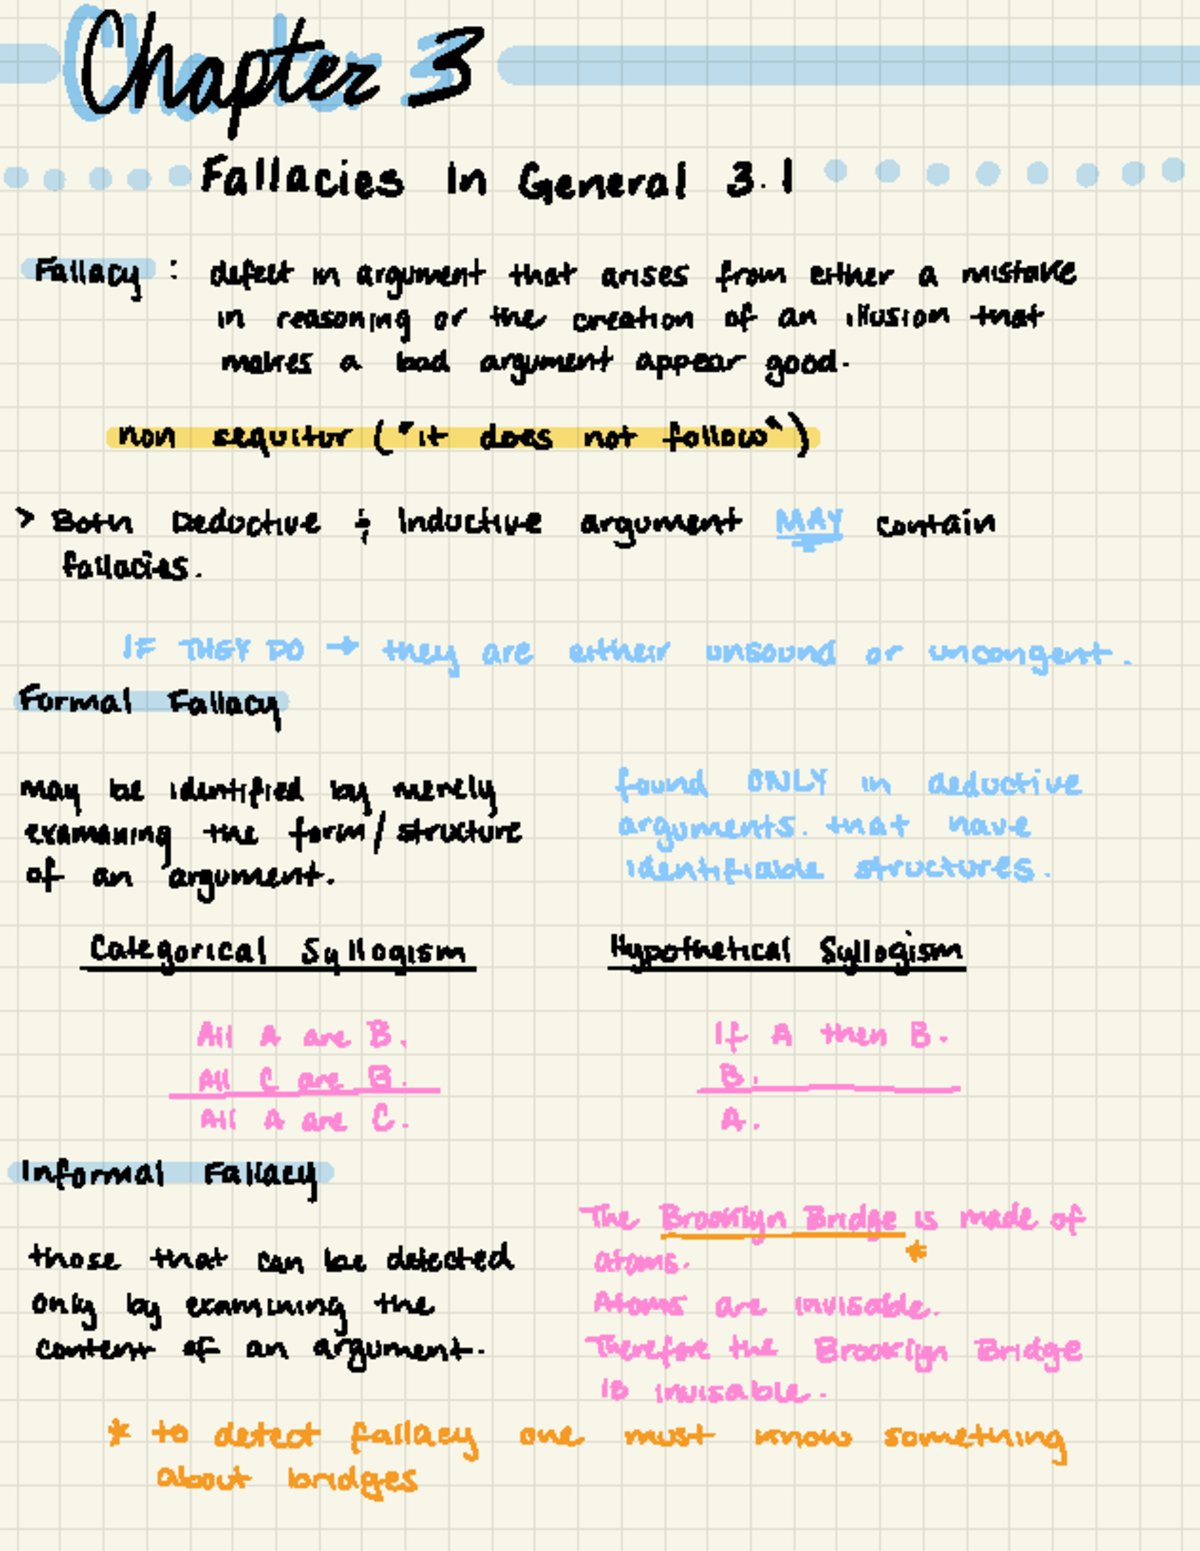 Chapter 3
Fallacies In General 3.1
Fallacy : defect in argument that arises from either a mistake
in reasoning or the creation of an illusion that
makes a bad argument appear good.
non sequitor ("it does not follow")
> Both Deductive & Inductive argument MAY contain
fallacies.
IF THEY DO → they are either unsound or uncongent.
Formal Fallacy
may be identified by merely
examaning the form/structure
of an argument.
found ONLY in deductive
arguments. that have
identifiable structures.
Categorical Syllogism
All A are B.
All C are B.
All A are C.
Hypothetical Syllogism
If A then B.
B.
A.
Informal Fallacy
those that can be detected
only by examining the
content of an argument.
The Brooklyn Bridge is made of
*
atoms.
Atoms are invisable.
Therefore the Brooklyn Bridge
is invisable.
* to detect fallacy one must know something
about bridges